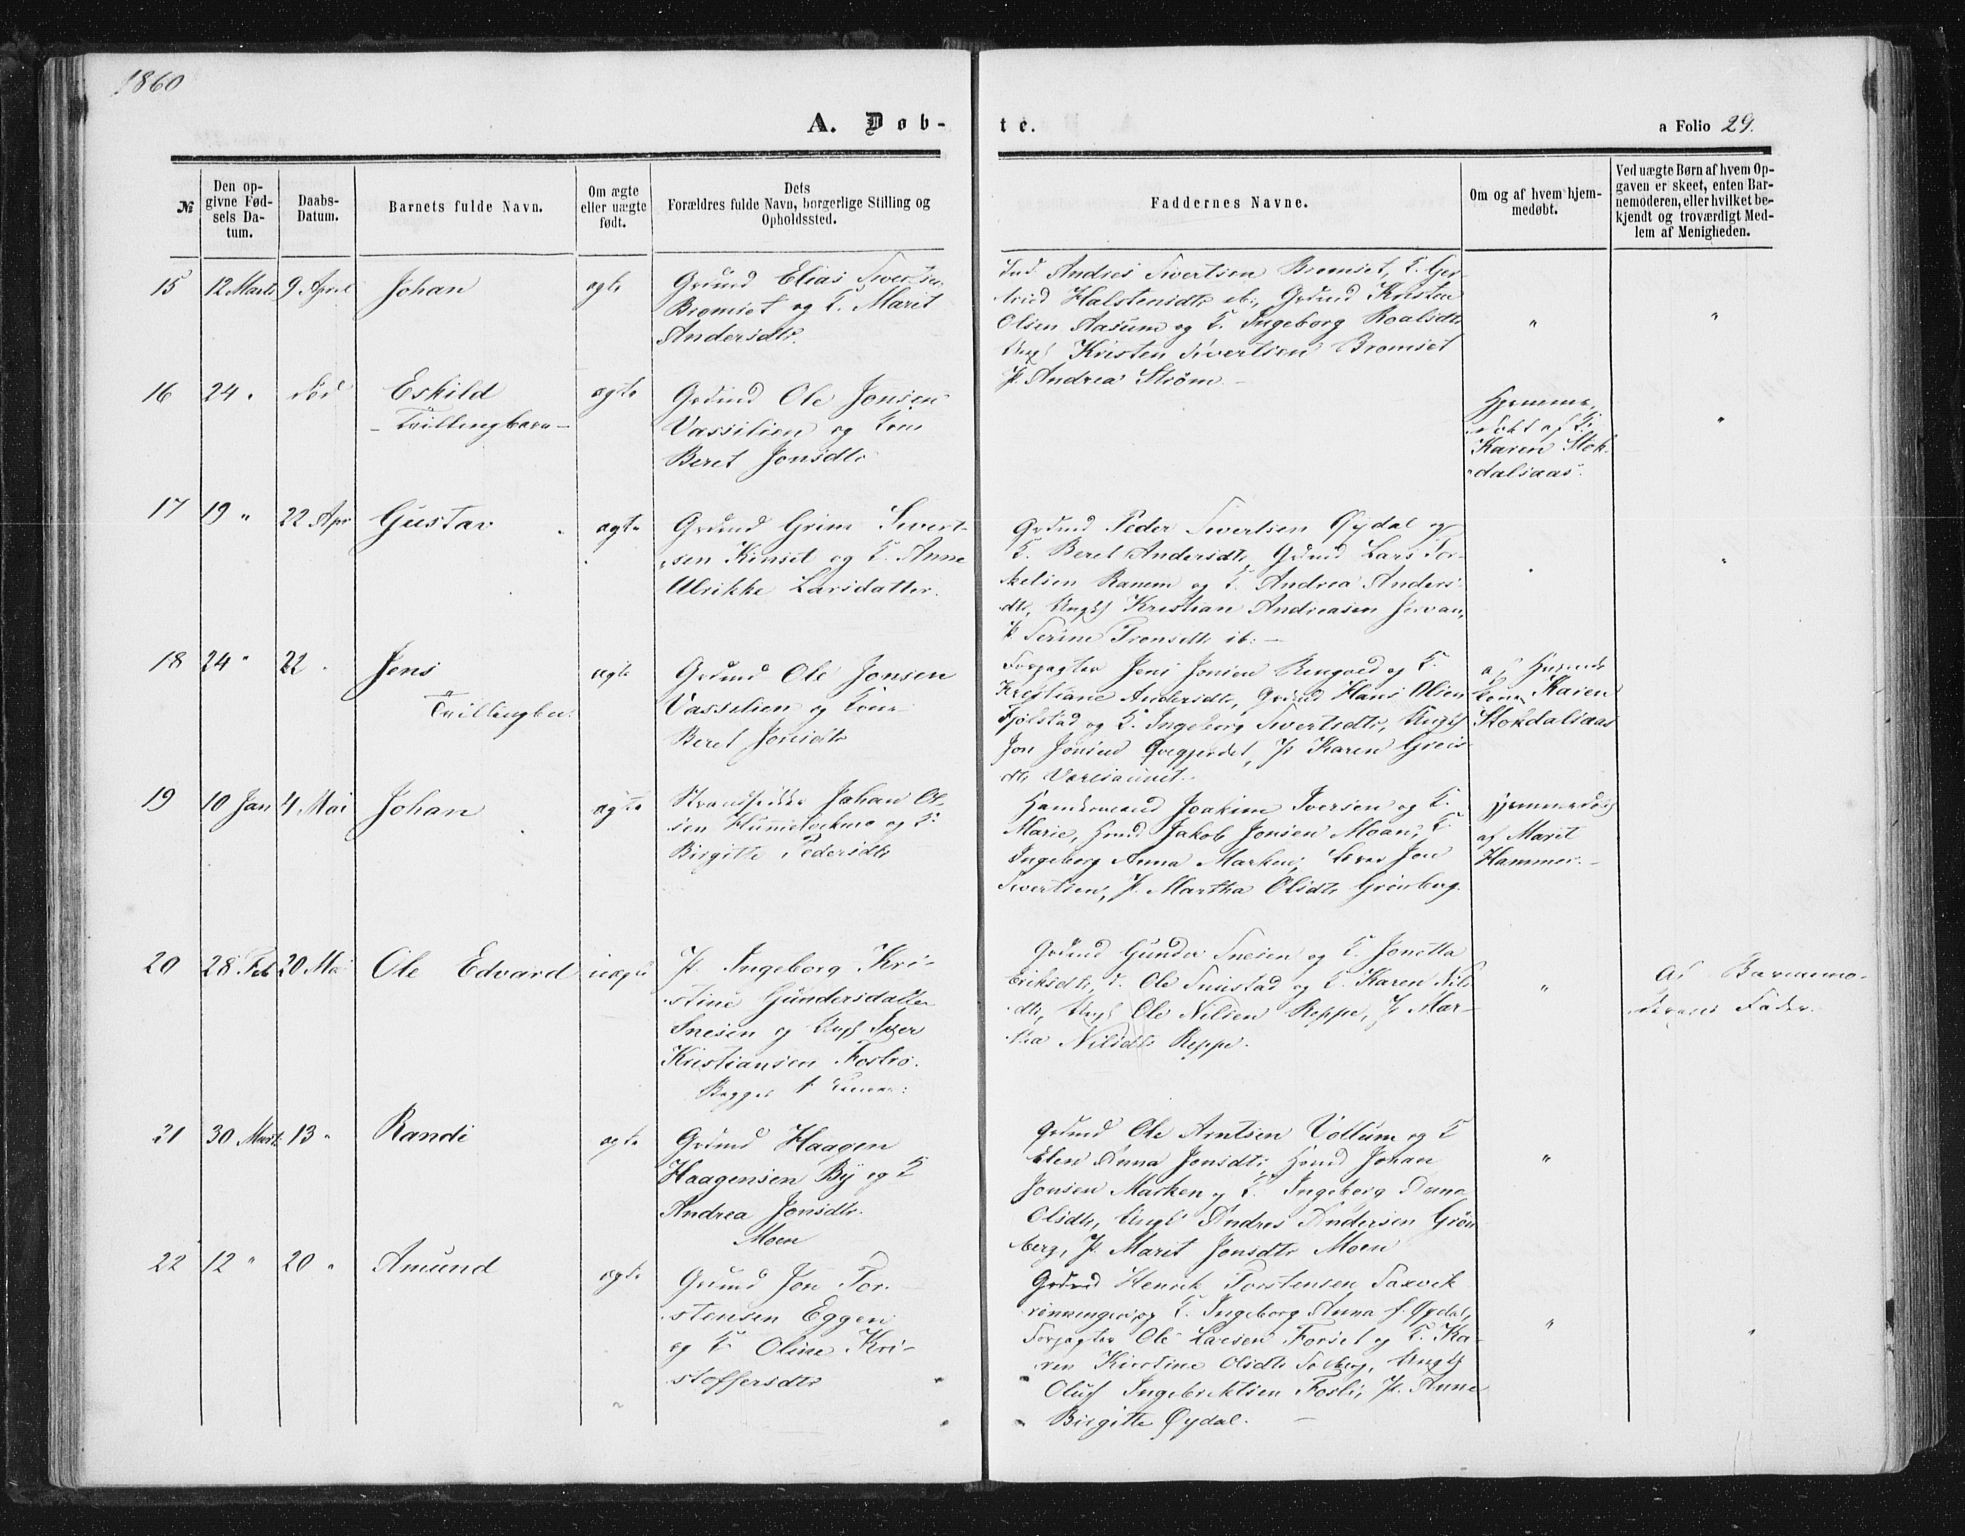 1860
A. Døb-
te.
a Folio 29.
№
Den op-
givne Fød-
sels Da-
tum.
Daabs-
Datum.
Barnets fulde Navn.
Om ægte
eller uægte
født.
Dets
Forældres fulde Navn, borgerlige Stilling og
Opholdssted.
Faddernes Navne.
Om og af hvem hjem-
medøbt.
Ved uægte Børn af hvem Op-
gaven er skeet, enten Bar-
nemoderen, eller hvilket be-
kjendt og troværdigt Med-
lem af Menigheden.
15
12 Marts
9 April
Johan
ægte
Grdmd Elias Sivertsen
Bromset og K. Marit
Andersdtr.
Andres Sivertsen Bromset, K.
Halstensdtr ib:, Grdmd Kristen
Olsen Aasum og K. Ingeborg Roalsdtr
Ungk Kristen Sivertsen Bromset
P. Andrea Strøm.
"
"
16
24 "
død
Eskild
- Tvillingbarn -
ægte
Grdmd Ole Jonsen
Vassilien og Kone
Beret Jonsdtr
Hjemme-
døbt af K:
Karen Stok-
dalsaas.
"
17
19 "
22 Apr
Gustav
ægte
Grdmd Grim Sivert-
sen Kinset og K. Anne
Ulrikke Larsdatter.
Grdmd Peder Sivertsen Øydal og
K. Beret Andersdtr, Grdmd Lars Tor-
kelsen Ranem og K. Andrea Anders-
dtr, Ungk Kristian Andreasen Jervan,
P. Serine Tronsdtr ib: -
"
18
24 "
22 "
Jens
Tvillingbn:
ægte
Grdmd Ole Jonsen
Vasselien og Kone
Beret Jonsdtr
Forpagter Jens Jonsen Ringvold og K.
Kristiane Andersdtr, Grdmd Hans Olsen
Fjølstad og K. Ingeborg Sivertsdtr, Ungk
Jon Jonsen Qvegjerdet, P. Karen Greis-
dtr
af Husmds
kone Karen
Stokdalsaas
19
10 Jan
4 Mai
Johan
ægte
Strandsidder Johan Ol-
sen og K.
Birgitte Pedersdtr
Joakim Iversen og K.
Marie, Hmd Jakob Jonsen Moan, K.
Ingeborg Anna Marken, Jon
Sivertsen, P. Martha Olsdtr Grønberg.
Hjemmedøbt
af Marit
Hammer. -
20
28 Feb
20 Mai
Ole Edvard
uægte
P. Ingeborg Kri-
stine Gundersdatter
Snesen og Ungk
Kristiansen Fosbro.
Begges 1
Grdmd Gunder Snesen og K. Jonetta
Eriksdtr, Ole og K. Karen Nils-
dtr, Ungk Ole Nilsen Reppe, P. Mar-
tha Nilsdtr Reppe.
"
Af Barnemo-
derens Fader.
21
30 Marts
13 "
Randi
ægte
Grdmd Haagen
Haagensen By og K
Andrea Jonsdtr.
Moen
Grdmd Ole Arntsen Vollum og K
Elen Anna Jonsdtr, Hmd Johan
Jonsen Marken og K. Ingeborg Anna
Olsdtr, Ungk Andres Andersen Grøn-
berg, P. Marit Jonsdtr Moen
"
22
12 "
20 "
Amund
ægte
Grdmd Jon Tor-
stensen Eggen
og K Oline Kri-
stoffersdtr
Grdmd Henrik Torstensen Saxvik
K. Ingeborg Anna f. Øydal,
Forpagter Ole Larsen Forset og K. Ka-
ren Kirstine Olsdtr Solberg, Ungk
Oluf Ingebriktsen Fosli, P. Anne
Birgitte Øydal. -
"
"